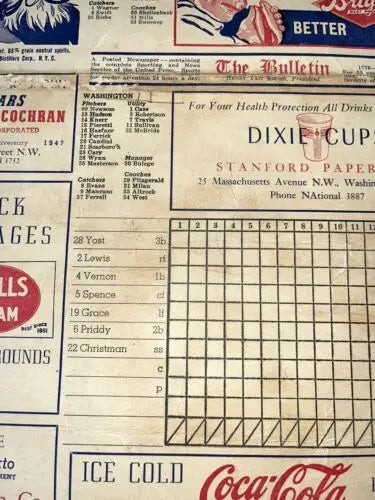 Catchers
2 Wagner
9 Swift
25 Riebe
Coaches
50 Shellenback
31 Mills
32 Sweeney
BETTER
85% grain neutral spirits.
istillers Corp., N. Y. C.
A Posted Newspaper—containing
the complete Sporting and News
Service of the United Press, Sports
attention 24 hours a day.
The Bulletin
President
ARS
COCHRAN
ORPORATED
niversary 1947
reet N.W.
1752
WASHINGTON
Pitchers
20 Newsom
13 Hudson
14 Knerr
15 Pieretti
16 Haefner
17 Ferrick
20 Candini
21 Scarboro'h
25 Cary
26 Wynn
33 Masterson
Utility
1 Case
3 Robertson
7 Travis
11 Sullivan
32 McBride
Manager
30 Bluege
Catchers
8 Evans
9 Mancuso
27 Ferrell
Coaches
29 Fitzgerald
31 Milan
32 Altrock
34 West
For Your Health Protection All Drinks
DIXIE CUPS
STANFORD PAPER
25 Massachusetts Avenue N.W., Washin
Phone NAtional 3887
CK
AGES
LLS
AM
BEST SINCE 1851
ROUNDS
1 2 3 4 5 6 7 8 9 10 11 12
28 Yost 3b
2 Lewis rf
4 Vernon 1b
5 Spence cf
19 Grace lf
6 Priddy 2b
22 Christman ss
c
p
cto
MENT
Co.
ICE COLD
Coca-Cola